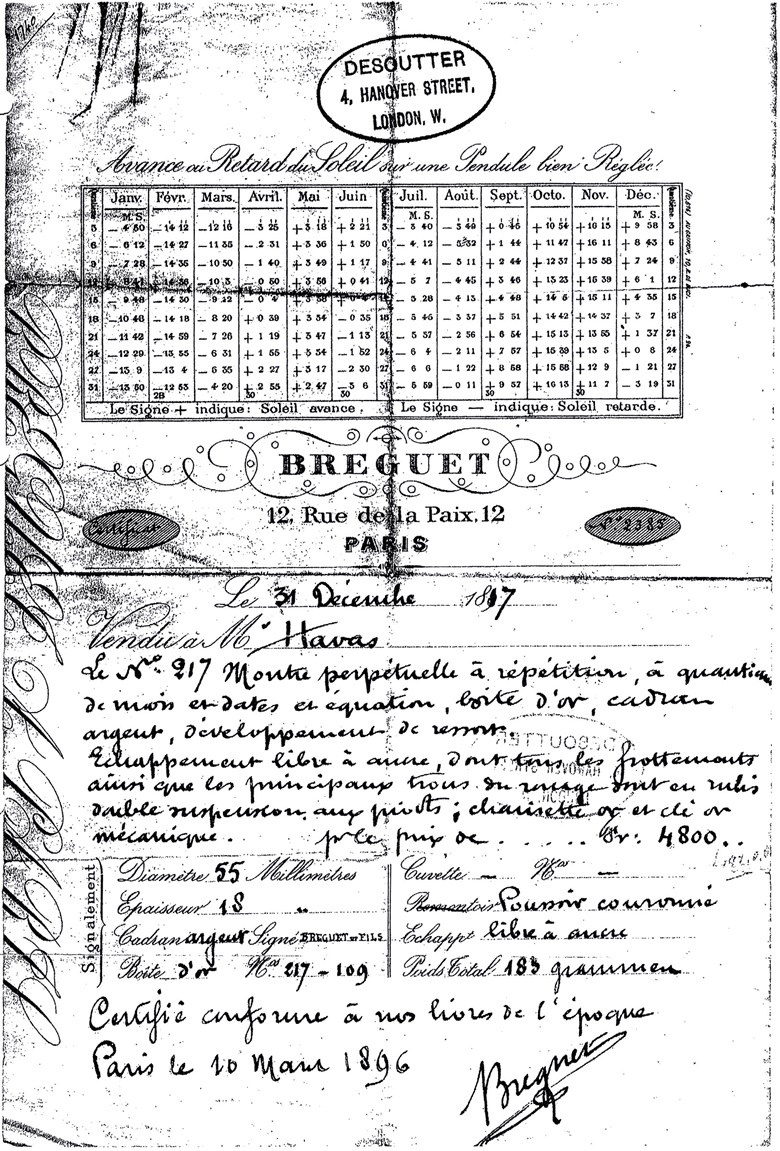 DESOUTTER
4, HANOVER STREET,
LONDON, W.
Avance ou Retard du Soleil sur une Pendule bien Réglée.
Janv. Févr. Mars. Avril. Mai Juin Juil. Août. Sept. Octo. Nov. Déc.
M. S. M. S. M. S.
3 — 4 50 — 14 12 — 12 16 — 3 25 + 3 18 + 2 21 3 — 3 40 + 0 46 + 10 54 + 16 15 + 9 58 3
6 — 6 12 — 14 27 — 11 35 — 2 31 + 3 36 + 1 50 6 — 4 12 — 5 32 + 1 44 + 11 47 + 16 11 + 8 43 6
9 — 7 28 — 14 35 — 10 50 — 1 40 + 3 49 + 1 17 9 — 4 41 — 5 11 + 2 44 + 12 37 + 15 58 + 7 24 9
12 — 10 3 — 0 50 + 3 56 + 0 41 12 — 5 7 — 4 45 + 3 46 + 13 23 + 15 39 + 6 1 12
15 — 9 48 — 14 30 — 9 12 15 — 5 28 — 4 13 + 4 48 + 14 5 + 15 11 + 4 35 15
18 — 10 48 — 14 18 — 8 20 + 0 39 + 3 54 — 0 35 18 — 5 46 — 3 37 + 5 51 + 14 42 + 14 37 + 3 7 18
21 — 11 42 — 14 59 — 7 26 + 1 19 + 3 47 — 1 13 21 — 5 37 — 2 56 + 6 54 + 15 13 + 13 55 + 1 37 21
24 — 12 29 — 13 35 — 6 31 + 1 55 + 3 34 — 1 52 24 — 6 4 — 2 11 + 7 57 + 15 39 + 13 5 + 0 8 24
27 — 13 9 — 13 4 — 6 35 + 2 27 + 3 17 — 2 30 27 — 6 6 — 1 22 + 8 58 + 15 58 + 12 9 — 1 21 27
31 — 13 50 — 12 53 — 4 20 + 2 55 + 2 47 — 3 6 31 — 5 59 — 0 11 + 9 57 + 16 13 + 11 7 — 3 19 31
28 30 30 30 30
Le Signe + indique: Soleil avance. Le Signe — indique: Soleil retarde.
BREGUET
12, Rue de la Paix, 12
PARIS
Certificat
N° 2385
Le 31 Décembre 1817
Vendu à Mr. Havas
Le No. 217 Montre perpétuelle à répétition, à quantième
de mois et dates et équation, boîte d'or, cadran
argent, développement de ressort.
DESOUTTER
Echappement libre à ancre, dont tous les frottements
ainsi que les principaux trous du rouage sont en rubis
double suspension aux pivots; chainette or et clé or
mécanique. pr le prix de ..... Fr: 4800..
Signalement
Diamètre 55 Millimètres Cuvette — Nos —
Epaisseur 18 " Remontoir Poussoir couronne
Cadran argent Signé BREGUET ET FILS Echappt libre à ancre
Boite d'or Nos 217 - 109 Poids Total 183 grammes
Certifié conforme à nos livres de l'époque
Paris le 10 Mars 1896
Breguet